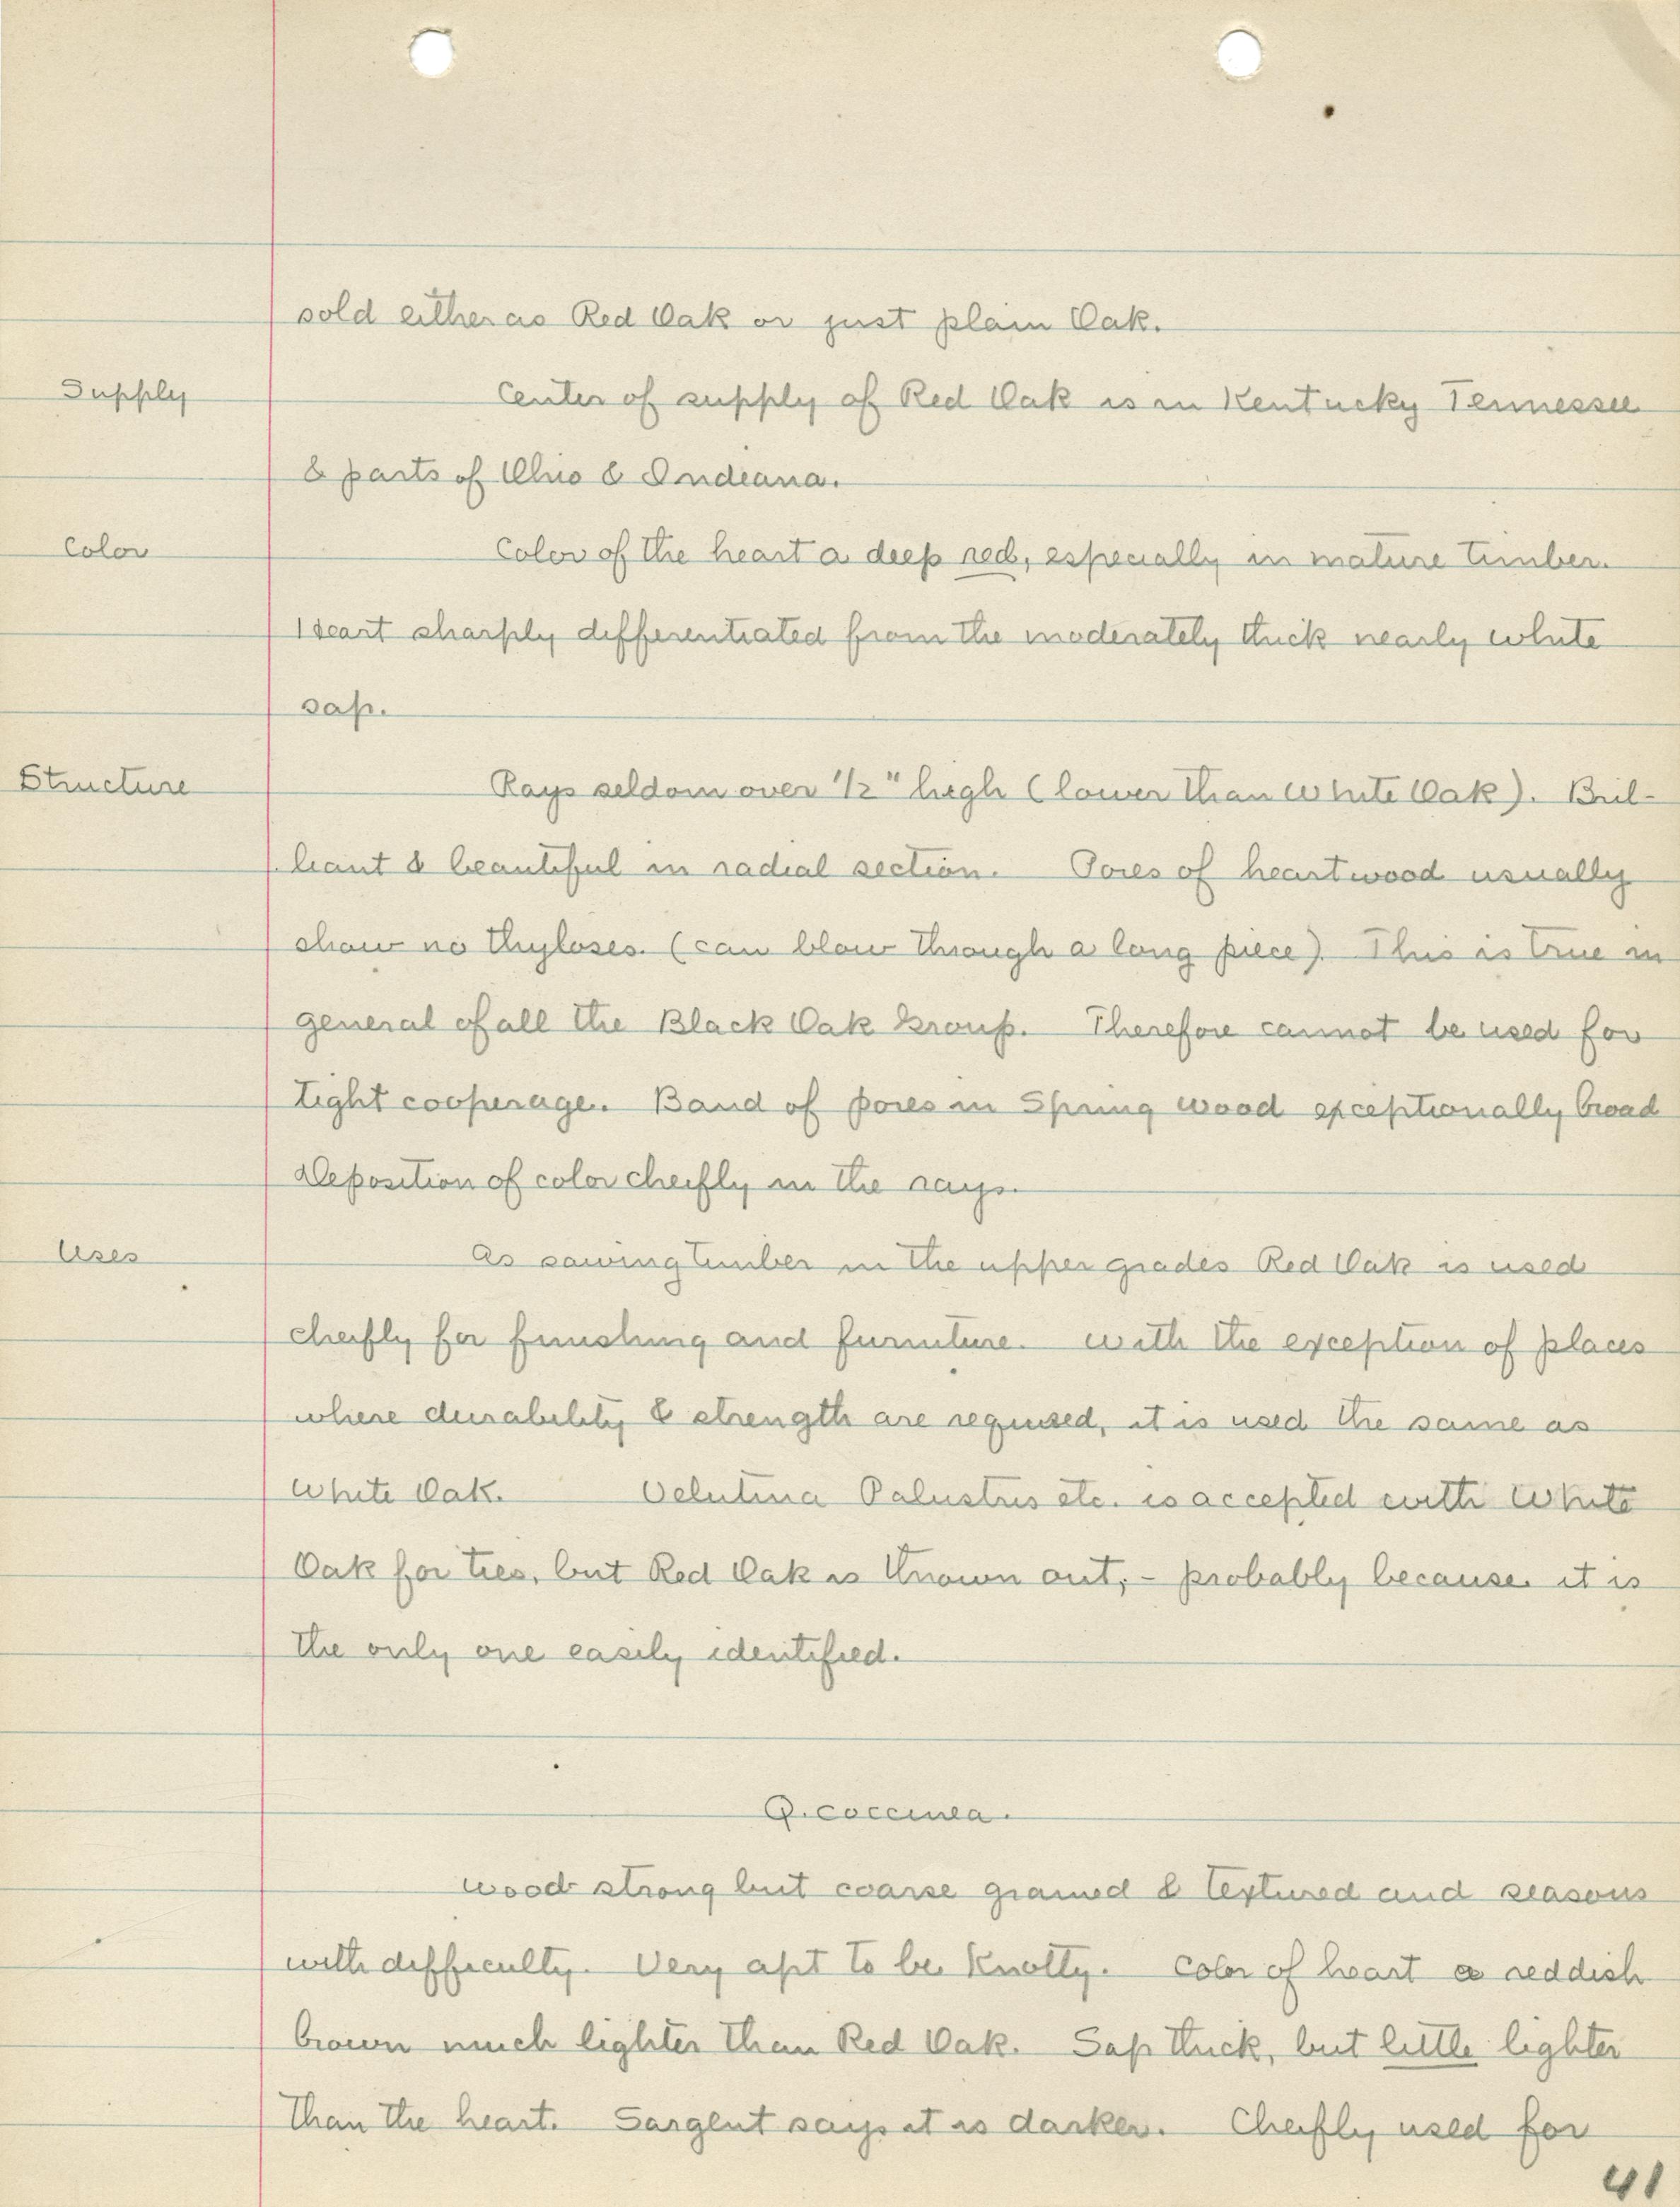 sold either as Red Oak or just plain Oak.
Supply Center of supply of Red Oak is in Kentucky Tennessee
& parts of Ohio & Indiana.
Color Color of the heart a deep red, especially in mature timber.
Heart sharply differentiated from the moderately thick nearly white
sap.
Structure Rays seldom over 1/2" high (lower than White Oak). Bril-
liant & beautiful in radial section. Pores of heartwood usually
show no thyloses. (can blow through a long piece). This is true in
general of all the Black Oak Group. Therefore cannot be used for
tight cooperage. Band of pores in Spring wood exceptionally broad
Deposition of color cheifly in the rays.
Uses As sawing timber in the upper grades Red Oak is used
cheifly for finishing and furniture. With the exception of places
where durability & strength are required, it is used the same as
White Oak. Velutina Palustris etc. is accepted with White
Oak for ties, but Red Oak is thrown out, - probably because it is
the only one easily identified.
Q. coccinea.
Wood strong but coarse grained & textured and seasons
with difficulty. Very apt to be Knotty. Color of heart a reddish
brown much lighter than Red Oak. Sap thick, but little lighter
than the heart. Sargent says it is darker. Cheifly used for
41